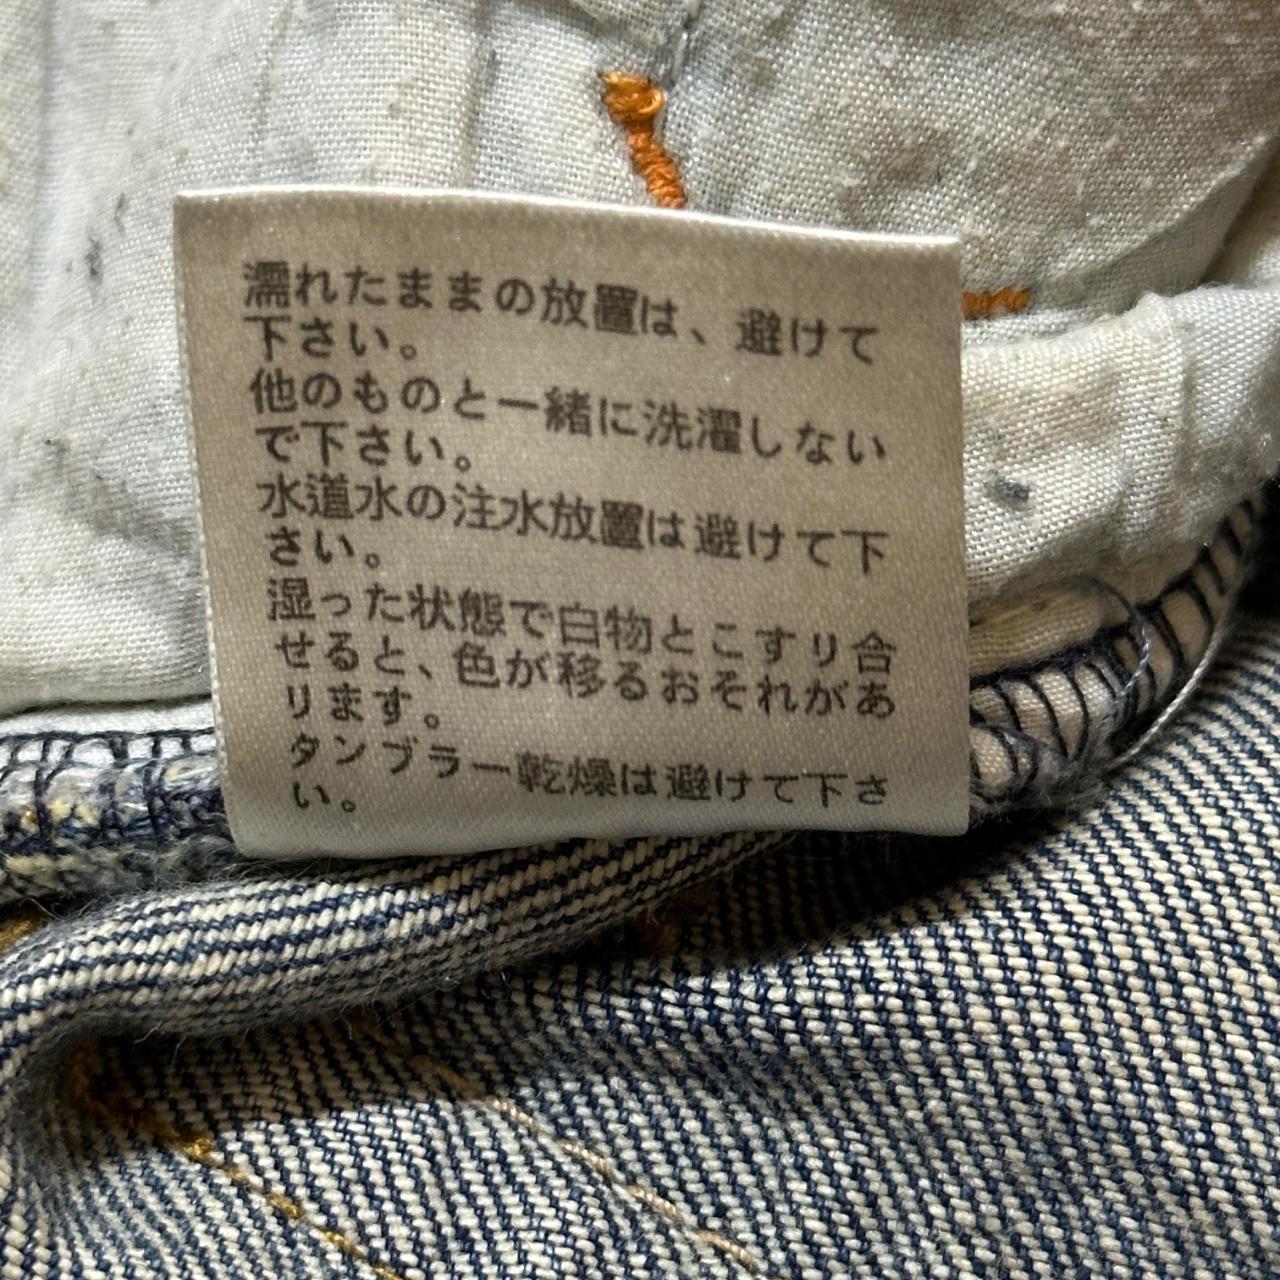 濡れたままの放置は、避けて
下さい。
他のものと一緒に洗濯しない
で下さい。
水道水の注水放置は避けて下
さい。
湿った状態で白物とこすり合
せると、色が移るおそれがあ
ります。
タンブラー乾燥は避けて下さ
い。